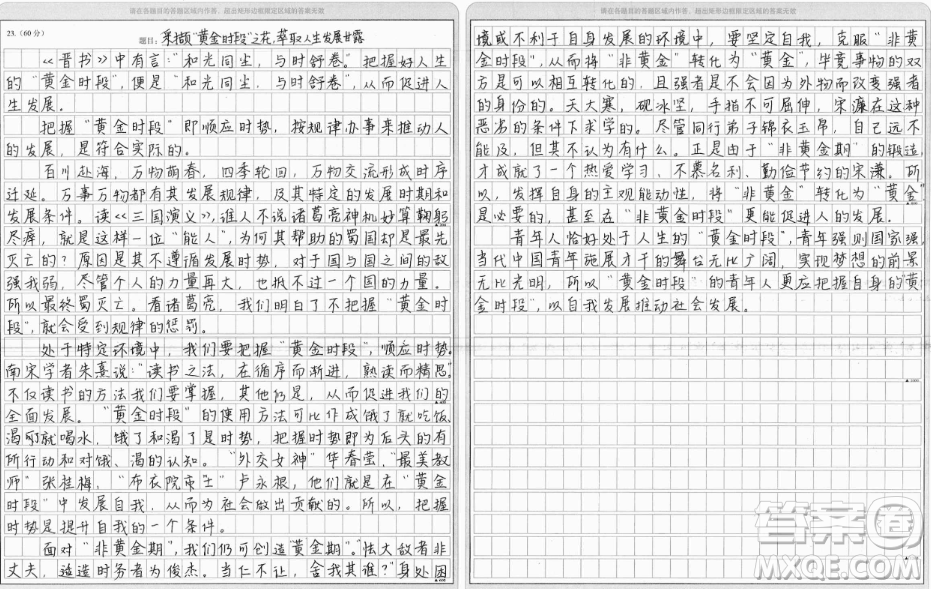 请在各题目的答题区域内作答，超出矩形边框限定区域的答案无效
23.（60分）
题目：采撷“黄金时段”之花，萃取人生发展甘露
《晋书》中有言：“和光同尘，与时舒卷。”把握好人生
的“黄金时段”，便是“和光同尘，与时舒卷”，从而促进人
生发展。
把握“黄金时段”即顺应时势，按规律办事来推动人
的发展，是符合实际的。
百川赴海，万物萌春，四季轮回，万物交流形成时序
迁延。万事万物都有其发展规律，及其特定的发展时期和
发展条件。读《三国演义》，谁人不说诸葛亮神机妙算鞠躬
尽瘁，就是这样一位“能人”，为何其帮助的蜀国却是最先
灭亡的？原因是其不遵循发展时势，对于国与国之间的敌
强我弱，尽管个人的力量再大，也抵不过一个国的力量。
所以最终蜀灭亡。看诸葛亮，我们明白了不把握“黄金时
段”，就会受到规律的惩罚。
处于特定环境中，我们要把握“黄金时段”，顺应时势。
南宋学者朱熹说：“读书之法，在循序而渐进，熟读而精思”
不仅读书的方法我们要掌握，其他仍是，从而促进我们的
全面发展。“黄金时段”的使用方法可比作成饿了就吃饭、
渴了就喝水，饿了和渴了是时势，把握时势即为后头的有
所行动和对饿、渴的认知。“外交女神”华春莹，“最美教
师”张桂梅，“布衣院士”卢永根，他们就是在“黄金
时段”中发展自我，从而为社会做出贡献的。所以，把握
时势是提升自我的一个条件。
面对“非黄金期”，我们仍可创造“黄金期”。怯大敌者非
丈夫，造时务者为俊杰。当仁不让，舍我其谁？身处困
请在各题目的答题区域内作答，超出矩形边框限定区域的答案无效
境或不利于自身发展的环境中，要坚定自我，克服“非黄
金时段”，从而将“非黄金”转化为“黄金”，毕竟事物的双
方是可以相互转化的，且强者是不会因为外物而改变强者
的身份的。天大寒，砚冰坚，手指不可屈伸，宋濂在这种
恶劣的条件下求学的。尽管同行弟子锦衣玉帛，自己远不
能及，但其不认为有什么。正是由于“非黄金期”的锻造，
才成就了一个热爱学习、不慕名利、勤俭节约的宋濂。所
以，发挥自身的主观能动性，将“非黄金”转化为“黄金”
是必要的，甚至在“非黄金时段”更能促进人的发展。
青年人恰好处于人生的“黄金时段”，青年强则国家强，
当代中国青年施展才干的舞台无比广阔，实现梦想的前景
无比光明，所以“黄金时段”的青年人更应把握自身的“黄
金时段”，以自我发展推动社会发展。
答案圈
MXQE.COM